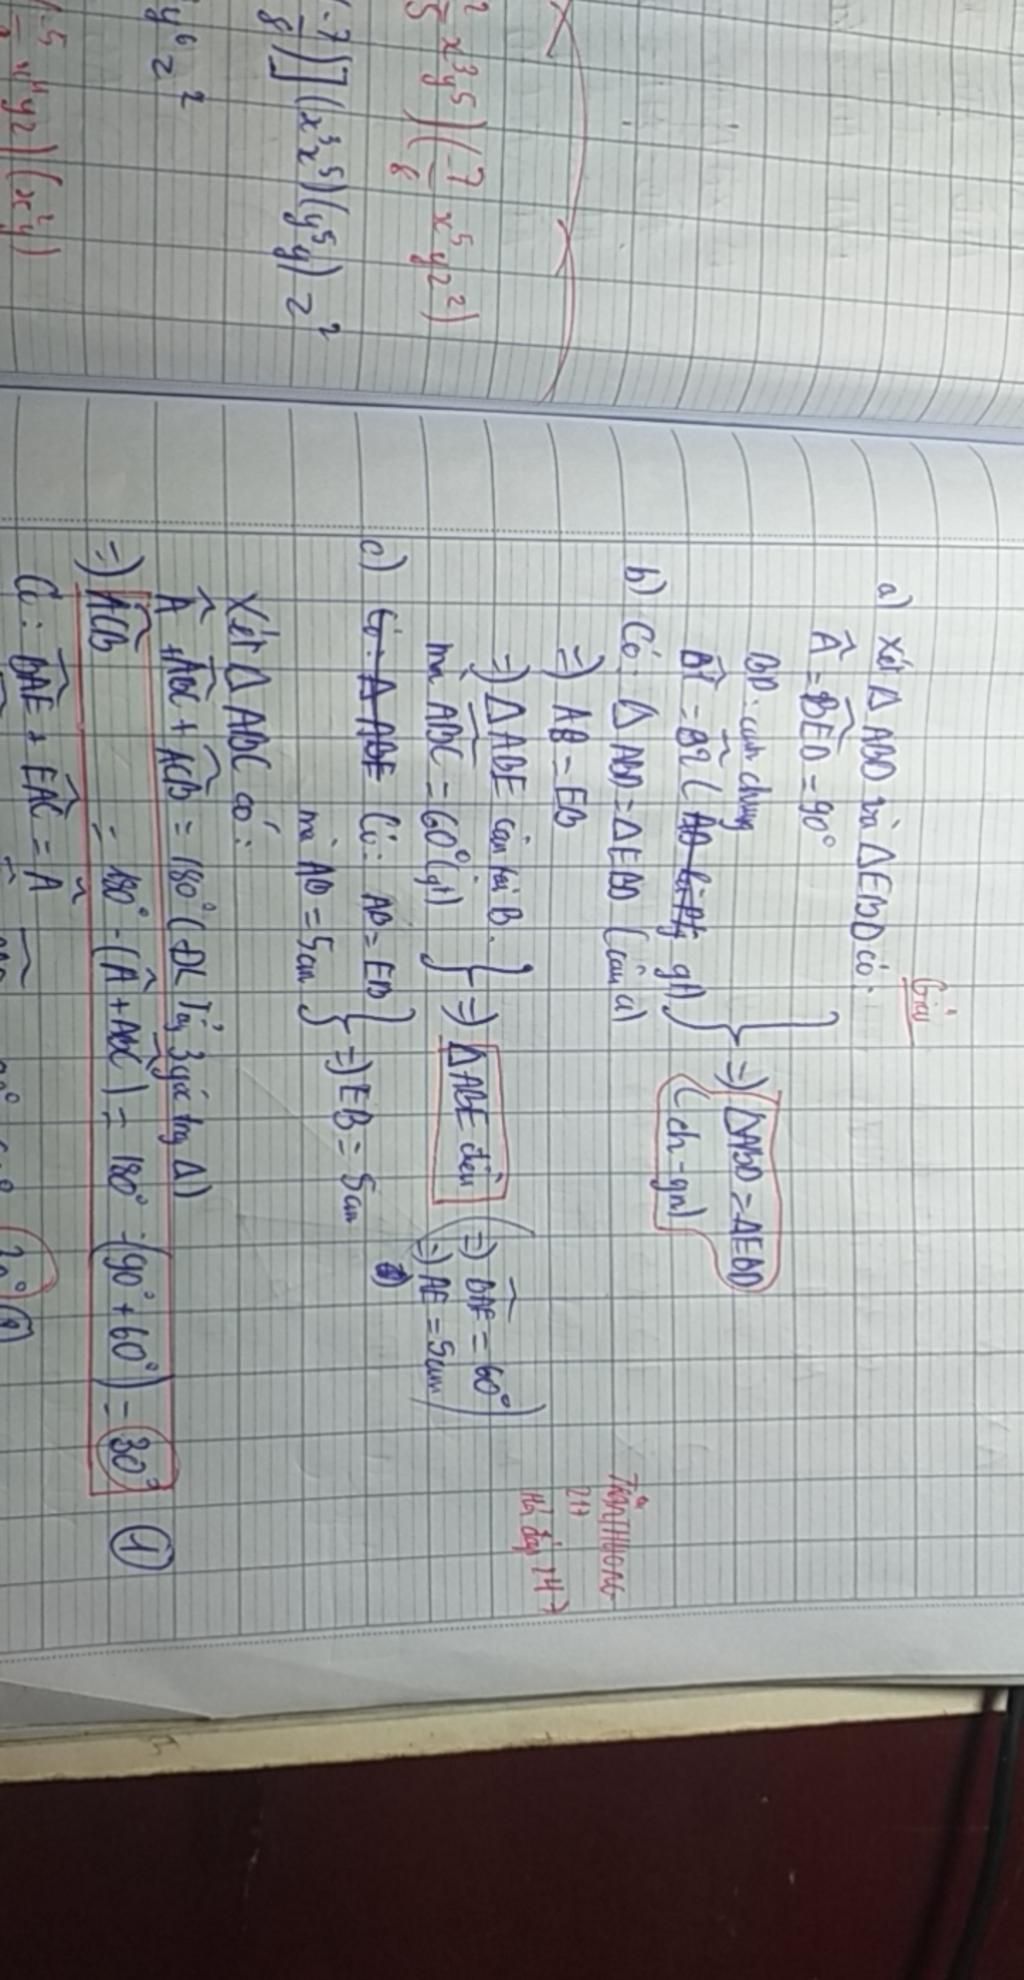 Giải
a) Xét Δ ABD và Δ EBD có:
Â = BED = 90°
BD: cạnh chung
B1 = B2 (
} => ΔABD = ΔEBD
(ch-gn)
b) Có: Δ ABD = Δ EBD (câu a)
=> AB = EB
=> Δ ABE cân tại B.
mà ABC = 60° (gt)
} => ΔABE đều
(=> BAE = 60°
=> AE = 5cm)
c) Có: AB = EB
mà AB = 5cm
} => EB = 5cm
Xét Δ ABC có:
Â + ABC + ACB = 180° (ĐL Tổng 3 góc trg Δ)
=> ACB = 180° - (Â + ABC) = 180° - (90° + 60°) = 30° (1)
Có: BAE + EAC = Â
x³y⁵)(-7/8 x⁵yz²)
(x³x⁵)(y⁵y) z²
y⁶ z²
x⁴yz)(x²y)